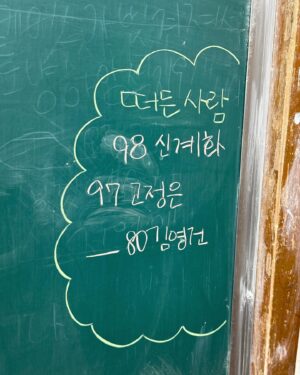 떠든 사람
98 신계화
97 고정은
80 김영건